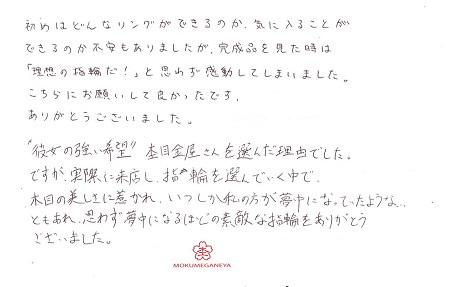 初めはどんなリングができるのか、気に入ることが
できるのか不安もありましたが、完成品を見た時は
「理想の指輪だ!」と思わず感動してしまいました。
こちらにお願いして良かったです。
ありがとうございました。
"彼女の強い希望" 杢目金屋さんを選んだ理由でした。
ですが、実際に来店し、指輪を選んでいく中で、
木目の美しさに惹かれ、いつしか私の方が夢中になっていたような…
ともあれ、思わず夢中になるほどの素敵な指輪をありがとう
ございました。
MOKUMEGANEYA